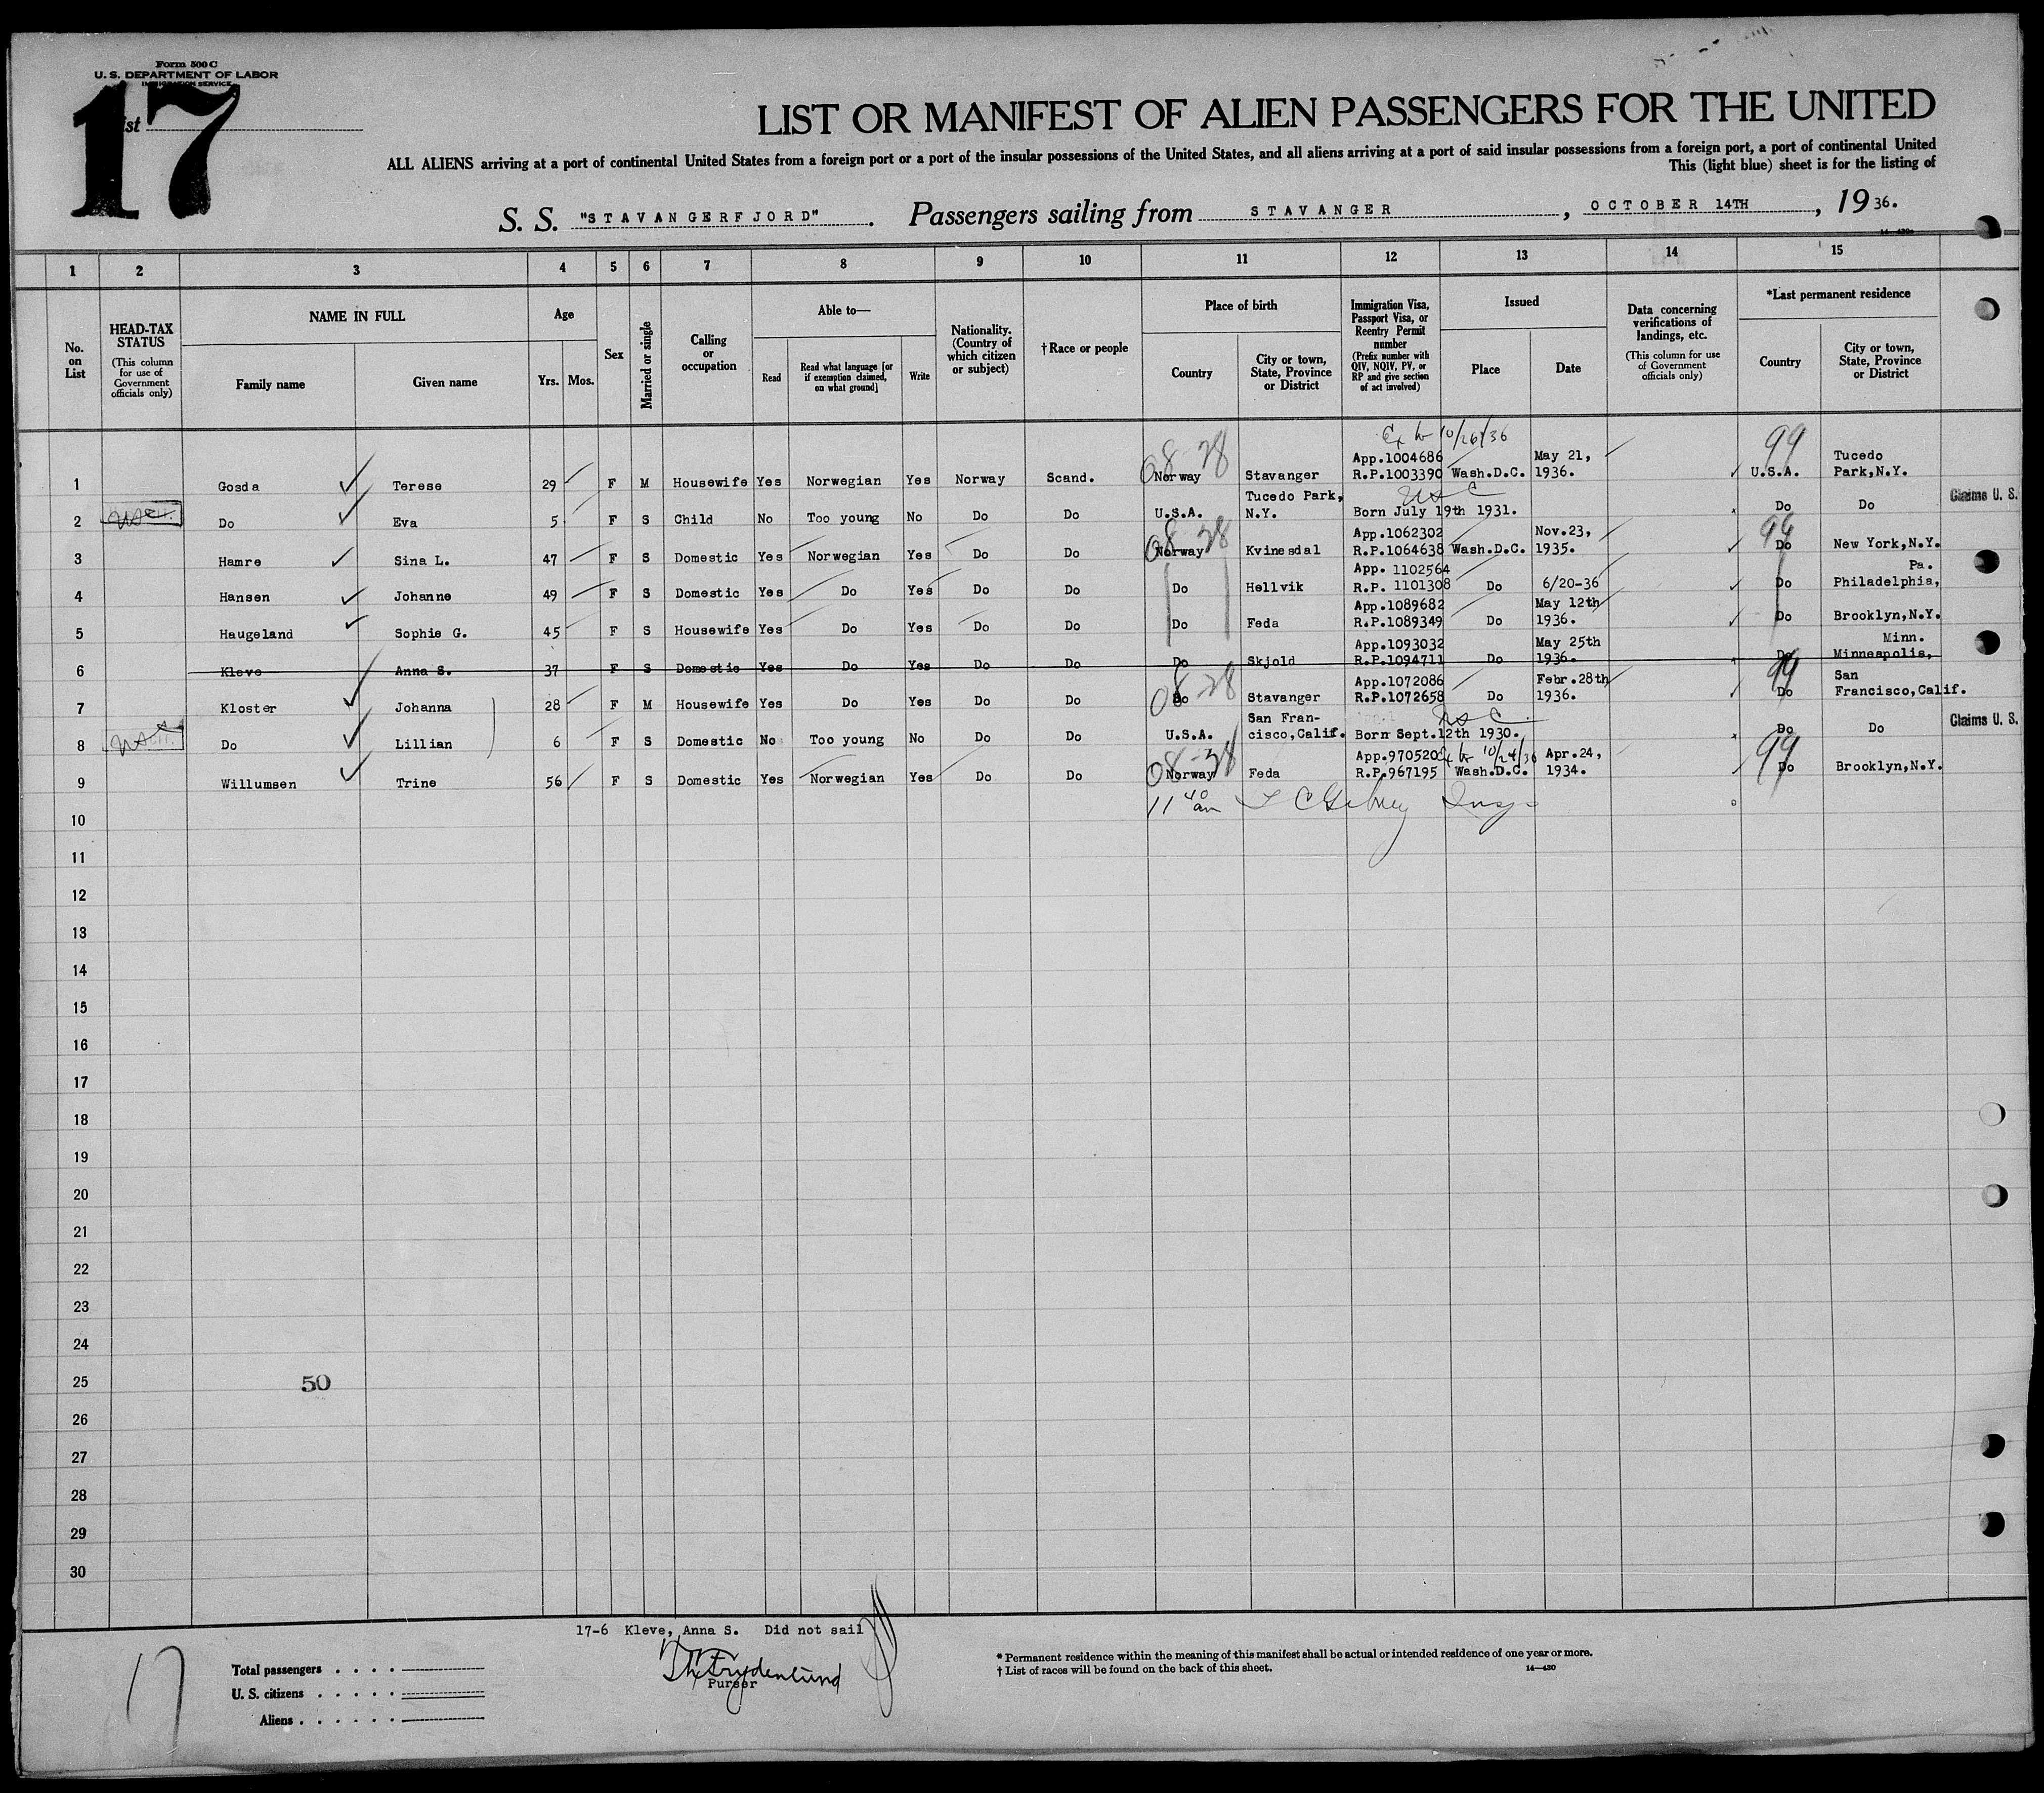 Form 500 C
U. S. DEPARTMENT OF LABOR
IMMIGRATION SERVICE
17
LIST OR MANIFEST OF ALIEN PASSENGERS FOR THE UNITED
ALL ALIENS arriving at a port of continental United States from a foreign port or a port of the insular possessions of the United States, and all aliens arriving at a port of said insular possessions from a foreign port, a port of continental United
This (light blue) sheet is for the listing of
S. S. "STAVANGERFJORD". Passengers sailing from STAVANGER, OCTOBER 14TH, 1936.
1 2 3 4 5 6 7 8 9 10 11 12 13 14 15
No. on List
HEAD-TAX STATUS (This column for use of Government officials only)
NAME IN FULL Family name Given name
Age Yrs. Mos.
Sex
Married or single
Calling or occupation
Able to— Read Read what language [or if exemption claimed, on what ground] Write
Nationality. (Country of which citizen or subject)
†Race or people
Place of birth Country City or town, State, Province or District
Immigration Visa, Passport Visa, or Reentry Permit number (Prefix number with QIV, NQIV, PV, or RP and give section of act involved)
Issued Place Date
Data concerning verifications of landings, etc. (This column for use of Government officials only)
*Last permanent residence Country City or town, State, Province or District
10/26/36
1 Gosda Terese 29 F M Housewife Yes Norwegian Yes Norway Scand. 08-28 Norway Stavanger App.1004686 R.P.1003390 Wash.D.C. May 21, 1936. 99 U.S.A. Tucedo Park,N.Y.
2 Do Eva 5 F S Child No Too young No Do Do U.S.A. Tucedo Park, N.Y. USC Born July 19th 1931. Do Do Claims U. S.
3 Hamre Sina L. 47 F S Domestic Yes Norwegian Yes Do Do 08-28 Norway Kvinesdal App.1062302 R.P.1064638 Wash.D.C. Nov.23, 1935. 99 Do New York,N.Y.
4 Hansen Johanne 49 F S Domestic Yes Do Yes Do Do Do Hellvik App. 1102564 R.P. 1101308 Do 6/20-36 Do Pa. Philadelphia,
5 Haugeland Sophie G. 45 F S Housewife Yes Do Yes Do Do Do Feda App.1089682 R.P.1089349 Do May 12th 1936. Do Brooklyn,N.Y.
6 Kleve Anna S. 37 F S Domestic Yes Do Yes Do Do Do Skjold App.1093032 R.P.1094711 Do May 25th 1936. Do Minn. Minneapolis,
7 Kloster Johanna 28 F M Housewife Yes Do Yes Do Do 08-28 Do Stavanger App.1072086 R.P.1072658 Do Febr.28th 1936. 99 Do San Francisco,Calif.
8 Do Lillian 6 F S Domestic No Too young No Do Do U.S.A. San Francisco,Calif. USC Born Sept.12th 1930. Do Do Claims U. S.
9 Willumsen Trine 56 F S Domestic Yes Norwegian Yes Do Do 08-28 Norway Feda App.970520 R.P.967195 10/24/36 Wash.D.C. Apr.24, 1934. 99 Do Brooklyn,N.Y.
10 11 40 am
11
12
13
14
15
16
17
18
19
20
21
22
23
24
25 50
26
27
28
29
30
17-6 Kleve, Anna S. Did not sail
17
Total passengers
U. S. citizens
Aliens
Frydenlund
Purser
* Permanent residence within the meaning of this manifest shall be actual or intended residence of one year or more.
† List of races will be found on the back of this sheet.
14—430